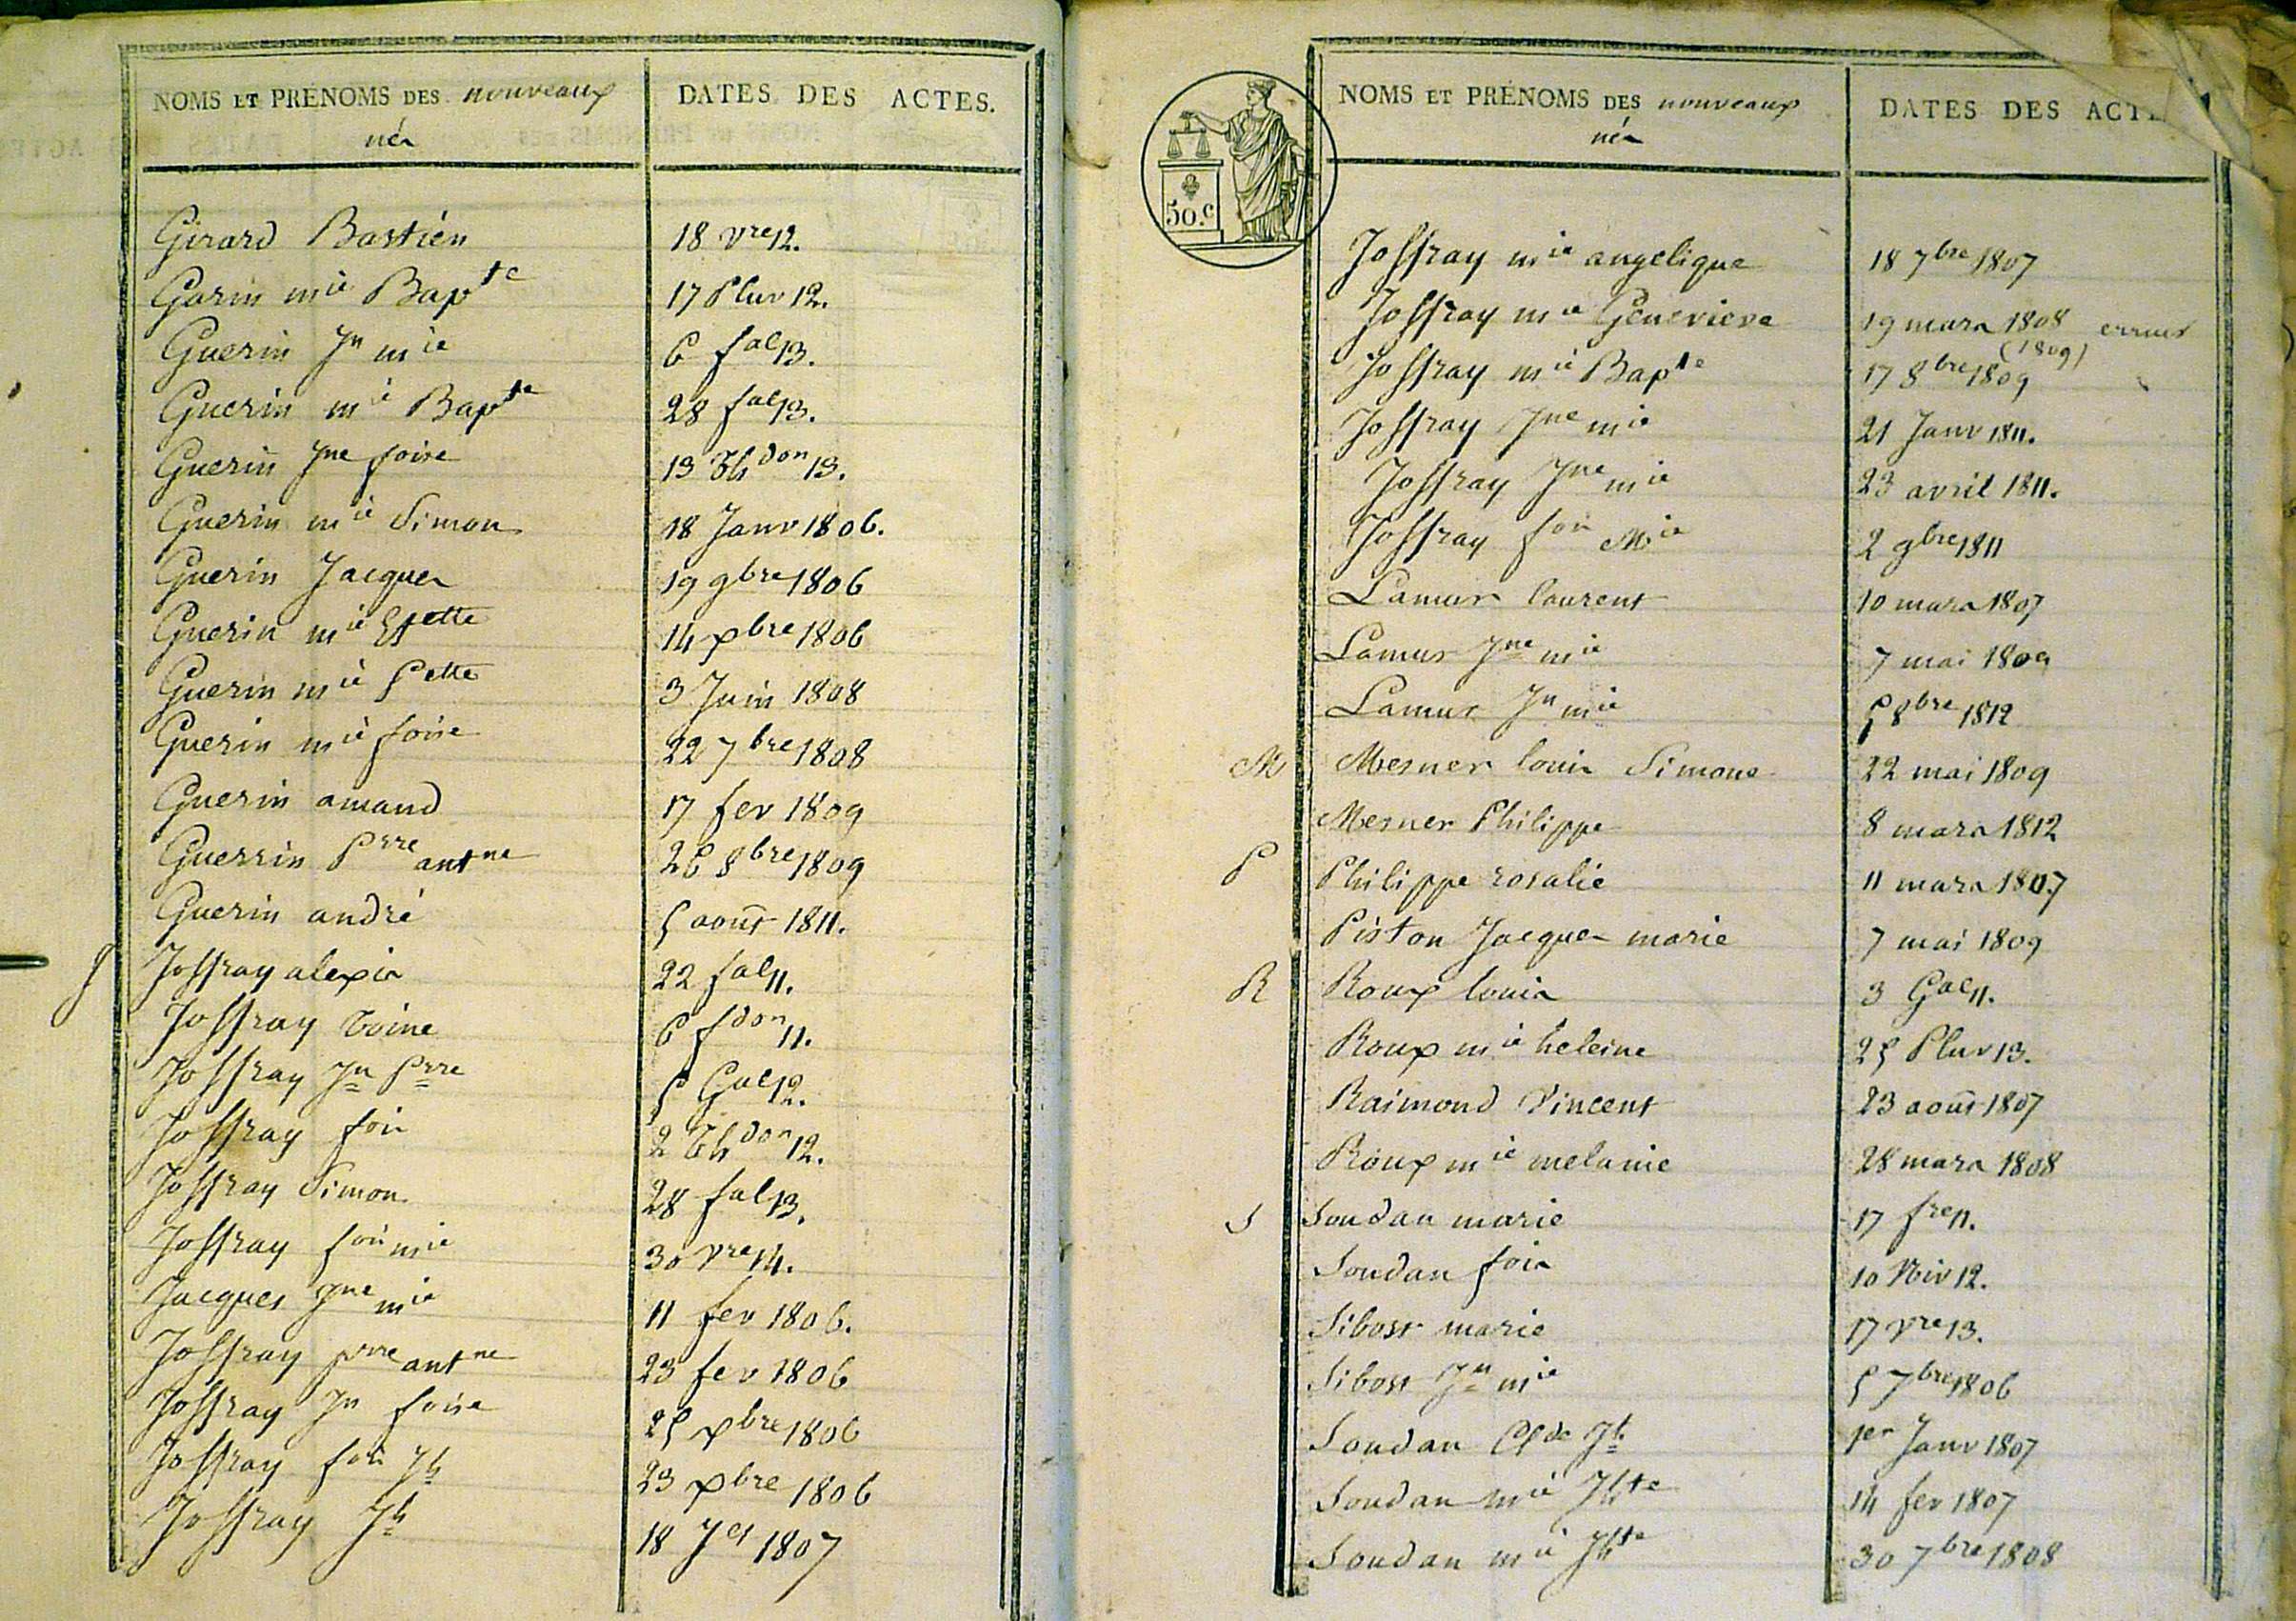 NOMS ET PRÉNOMS DES nouveaux
nés
DATES DES ACTES.
Girard Bastien 18 vre 12.
Garin mie Bapte 17 Pluv 12.
Guerin Jn mie 6 fal 13.
Guerin mie Bapte 28 fal 13.
Guerin Jne foise 13 Thdon 13.
Guerin mie Simon 18 Janv 1806.
Guerin Jacques 19 9bre 1806
Guerin mie Ettte 14 xbre 1806
Guerin mie Pette 3 Juin 1808
Guerin mie foise 22 7bre 1808
Guerin amand 17 fev 1809
Guerrin Prre antne 26 8bre 1809
Guerin andré 5 aout 1811.
J Joffray alexis 22 fal 11.
Joffray Toine 6 fdon 11.
Joffray Jn Prre 5 Gal 12.
Joffray fois 2 Thdon 12.
Joffray Simon 28 fal 13.
Joffray fois mie 30 vre 14.
Jacques Jne mie 11 fev 1806.
Joffray prre antne 23 fev 1806
Joffray Jn foise 25 xbre 1806
Joffray fois Jh 23 xbre 1806
Joffray Jh 18 Jet 1807
NOMS ET PRÉNOMS DES nouveaux
nés
DATES DES ACT
50.c
Joffray mie angelique 18 7bre 1807
Joffray mie Genevieve 19 mars 1808 erreur
(1809)
Joffray mie Bapte 17 8bre 1809
Joffray Jne mie 21 Janv 1811.
Joffray Jne mie 23 avril 1811.
Joffray fois Mie 2 9bre 1811
Lamur laurent 10 mars 1807
Lamur Jne mie 7 mai 1809
Lamur Jn mie 5 8bre 1812
M Mesner louis Simone 22 mai 1809
Mesner Philippe 8 mars 1812
P Philippe rosalie 11 mars 1807
Piston Jacques marie 7 mai 1809
R Roux louis 3 Gal 11.
Roux mie heleine 25 Pluv 13.
Raimond Vincent 23 aout 1807
Roux mie melanie 28 mars 1808
S Soudan marie 17 fre 11.
Soudan fois 10 Niv 12.
Sibost marie 17 vre 13.
Sibost Jn mie 5 7bre 1806
Soudan Clde Jh 1er Janv 1807
Soudan mie Jhte 14 fev 1807
Soudan mie Jhte 30 7bre 1808